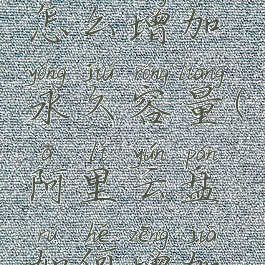 怎么增加
yǒng jiǔ róng liàng
永久容量(
ā lǐ yún pán
阿里云盘
rú hé zēng jiā
如何增加